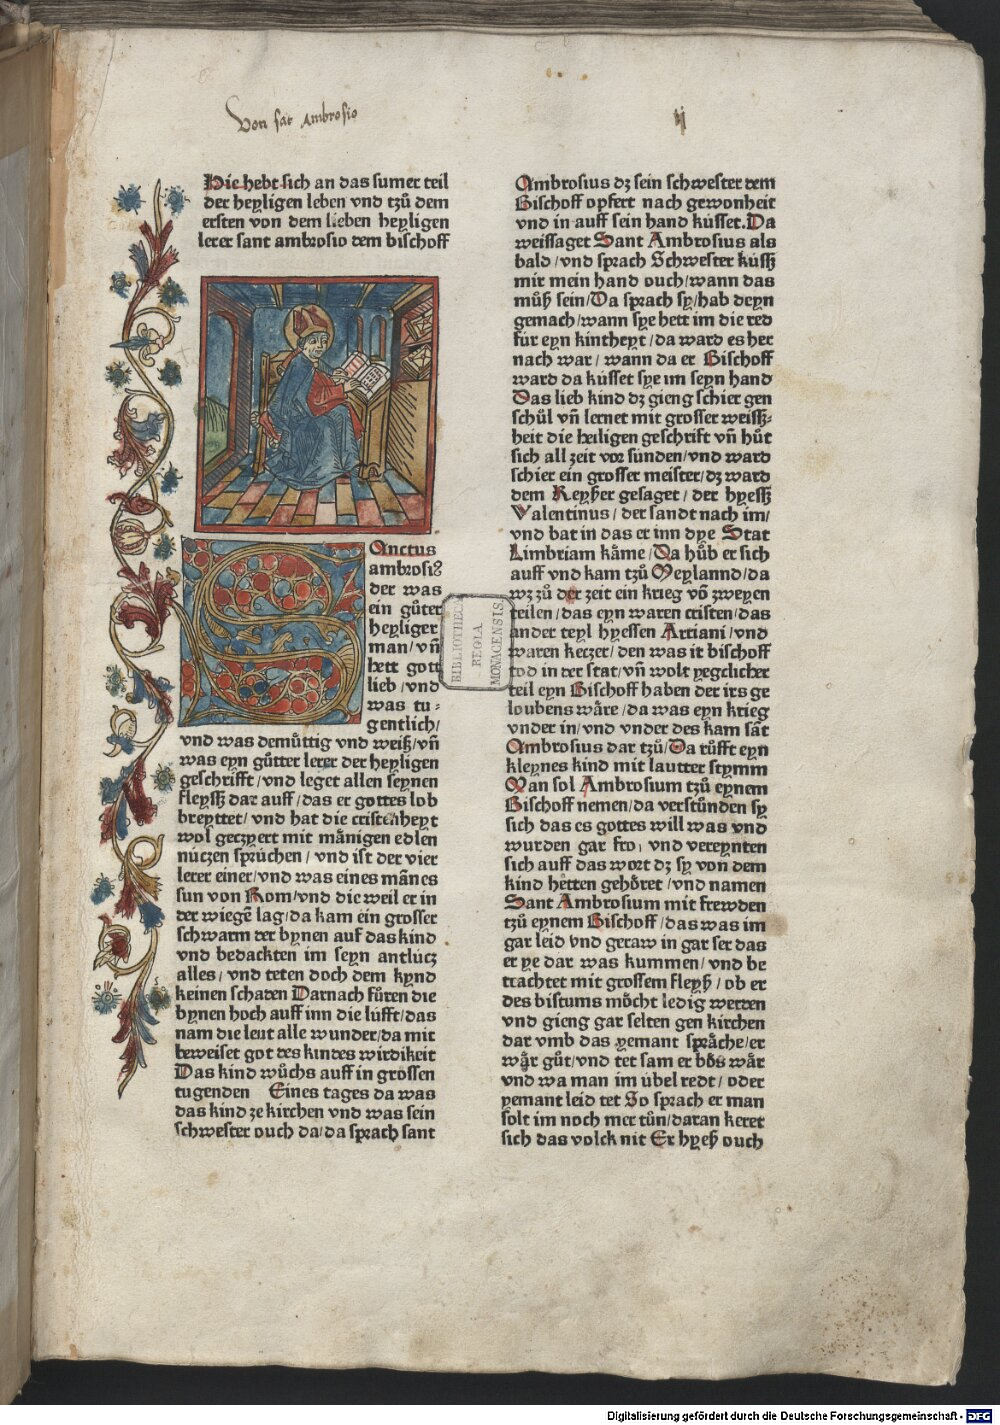 Von sāt Ambrosio
ij
Hie hebt sich an das sumer teil
der heyligen leben vnd tzů dem
ersten von dem lieben heyligen
lerer sant ambrosio dem bischoff
Sanctus
ambrosiꝰ
der was
ein gůter
heyliger
man/vñ
hett gott
lieb/vnd
was tu⸗
gentlich/
vnd was demůttig vnd weiß/vñ
was eyn gůtter lerer der heyligen
geschrifft/vnd leget allen seynen
fleyssz dar auff/das er gottes lob
breyttet/vnd hat die cristenheyt
wol geczyert mit mānigen edlen
nuczen sprüchen/vnd ist der vier
lerer einer/vnd was eines māncs
sun von Rom/vnd die weil er in
der wiegē lag/da kam ein grosser
schwarm der bynen auf das kind
vnd bedackten im seyn antlücz
alles/vnd teten doch dem kynd
keinen schaden Darnach fůren die
bynen hoch auff inn die lüfft/das
nam die leut alle wunder/da mit
beweiset got des kindes wirdikeit
Das kind wůchs auff in grossen
tugenden Eines tages da was
das kind ze kirchen vnd was sein
schwester ouch da/da sprach sant
Ambrosius dz sein schwester dem
Bischoff opfert nach gewonheit
vnd in auff sein hand küsset. Da
weissaget Sant Ambrosius als
bald/vnd sprach Schwester küssz
mir mein hand ouch/wann das
můß sein/Da sprach sy/hab deyn
gemach/wann sye hett im die red
für eyn kintheyt/da ward es her
nach war/wann da er Bischoff
ward da küsset sye im seyn hand
Das lieb kind dz gieng schier gen
schůl vñ lernet mit grosser weissz⸗
heit die heiligen geschrift vñ hůt
sich all zeit vor sünden/vnd ward
schier ein grosser meister/dz ward
dem Keyßer gesaget/der hyessz
Valentinus/der sandt nach im/
vnd bat in das er inn dye Stat
Limbriam kåme/Da hůb er sich
auff vnd kam tzů Meylannd/da
wz zů der zeit ein krieg võ zweyen
teilen/das eyn waren cristen/das
ander teyl hyessen Arriani/vnd
waren keczer/den was it bischoff
tod in der stat/vñ wolt yegclicher
teil eyn Bischoff haben der irs ge
loubens wåre/da was eyn krieg
vnder in/vnd vnder des kam sāt
Ambrosius dar tzů/Da rüfft eyn
kleynes kind mit lautter stymm
Man sol Ambrosium tzů eynem
Bischoff nemen/da verstůnden sy
sich das es gottes will was vnd
wurden gar fro, vnd vereynten
sich auff das wort dz sy von dem
kind hetten gehöret/vnd namen
Sant Ambrosium mit frewden
tzů eynem Bischoff/das was im
gar leid vnd geraw in gar ser das
er ye dar was kummen/vnd be
trachtet mit grossem fleyß/ob er
des bistums möcht ledig werren
vnd gieng gar selten gen kirchen
dar vmb das yemant spräche/er
wår gůt/vnd tet sam er bös wår
vnd wa man im übel redt/oder
yemant leid tet So sprach er man
solt im noch mer tůn/daran keret
sich das volck nit Er hyeß ouch
BIBLIOTHECA
REGIA
MONACENSIS.
Digitalisierung gefördert durch die Deutsche Forschungsgemeinschaft - DFG